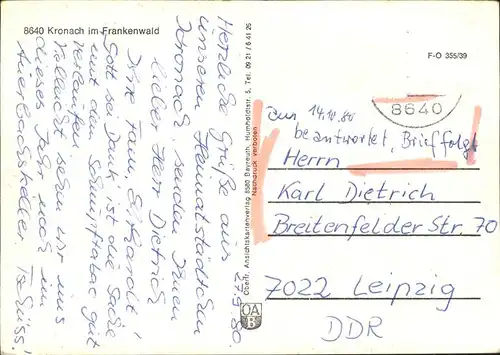 8640 Kronach im Frankenwald
27.9.80
Herzliche Grüße aus
unserem Heimatstädtchen
Kronach, senden Ihnen
lieber Herr Dietrich
Ihre Fam. Eckhardt!
Gott sei Dank ist die Sache
mit dem Schnupftabac gut
verlaufen.
Vielleicht sehn wir uns
dieses Jahr noch im
Auerbachskeller. Tschüss!
Oberfr. Ansichtskartenverlag 8580 Bayreuth, Humboldtstr. 5, Tel. 09 21 / 6 41 25
Nachdruck verboten
OA
B
F-O 355/39
8640
am 14.10.80
beantwortet, Brief folgt
Herrn
Karl Dietrich
Breitenfelder Str. 70
7022 Leipzig
DDR